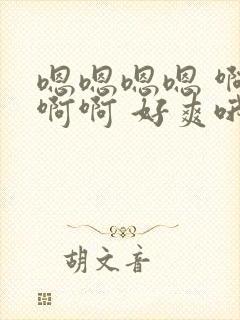 嗯嗯嗯嗯 啊
啊啊 好爽哦
胡文音